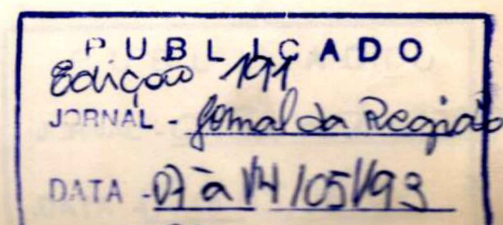 PUBLICADO
Edição 191
JORNAL - Jornal da Região
DATA - 07 à 14/05/93